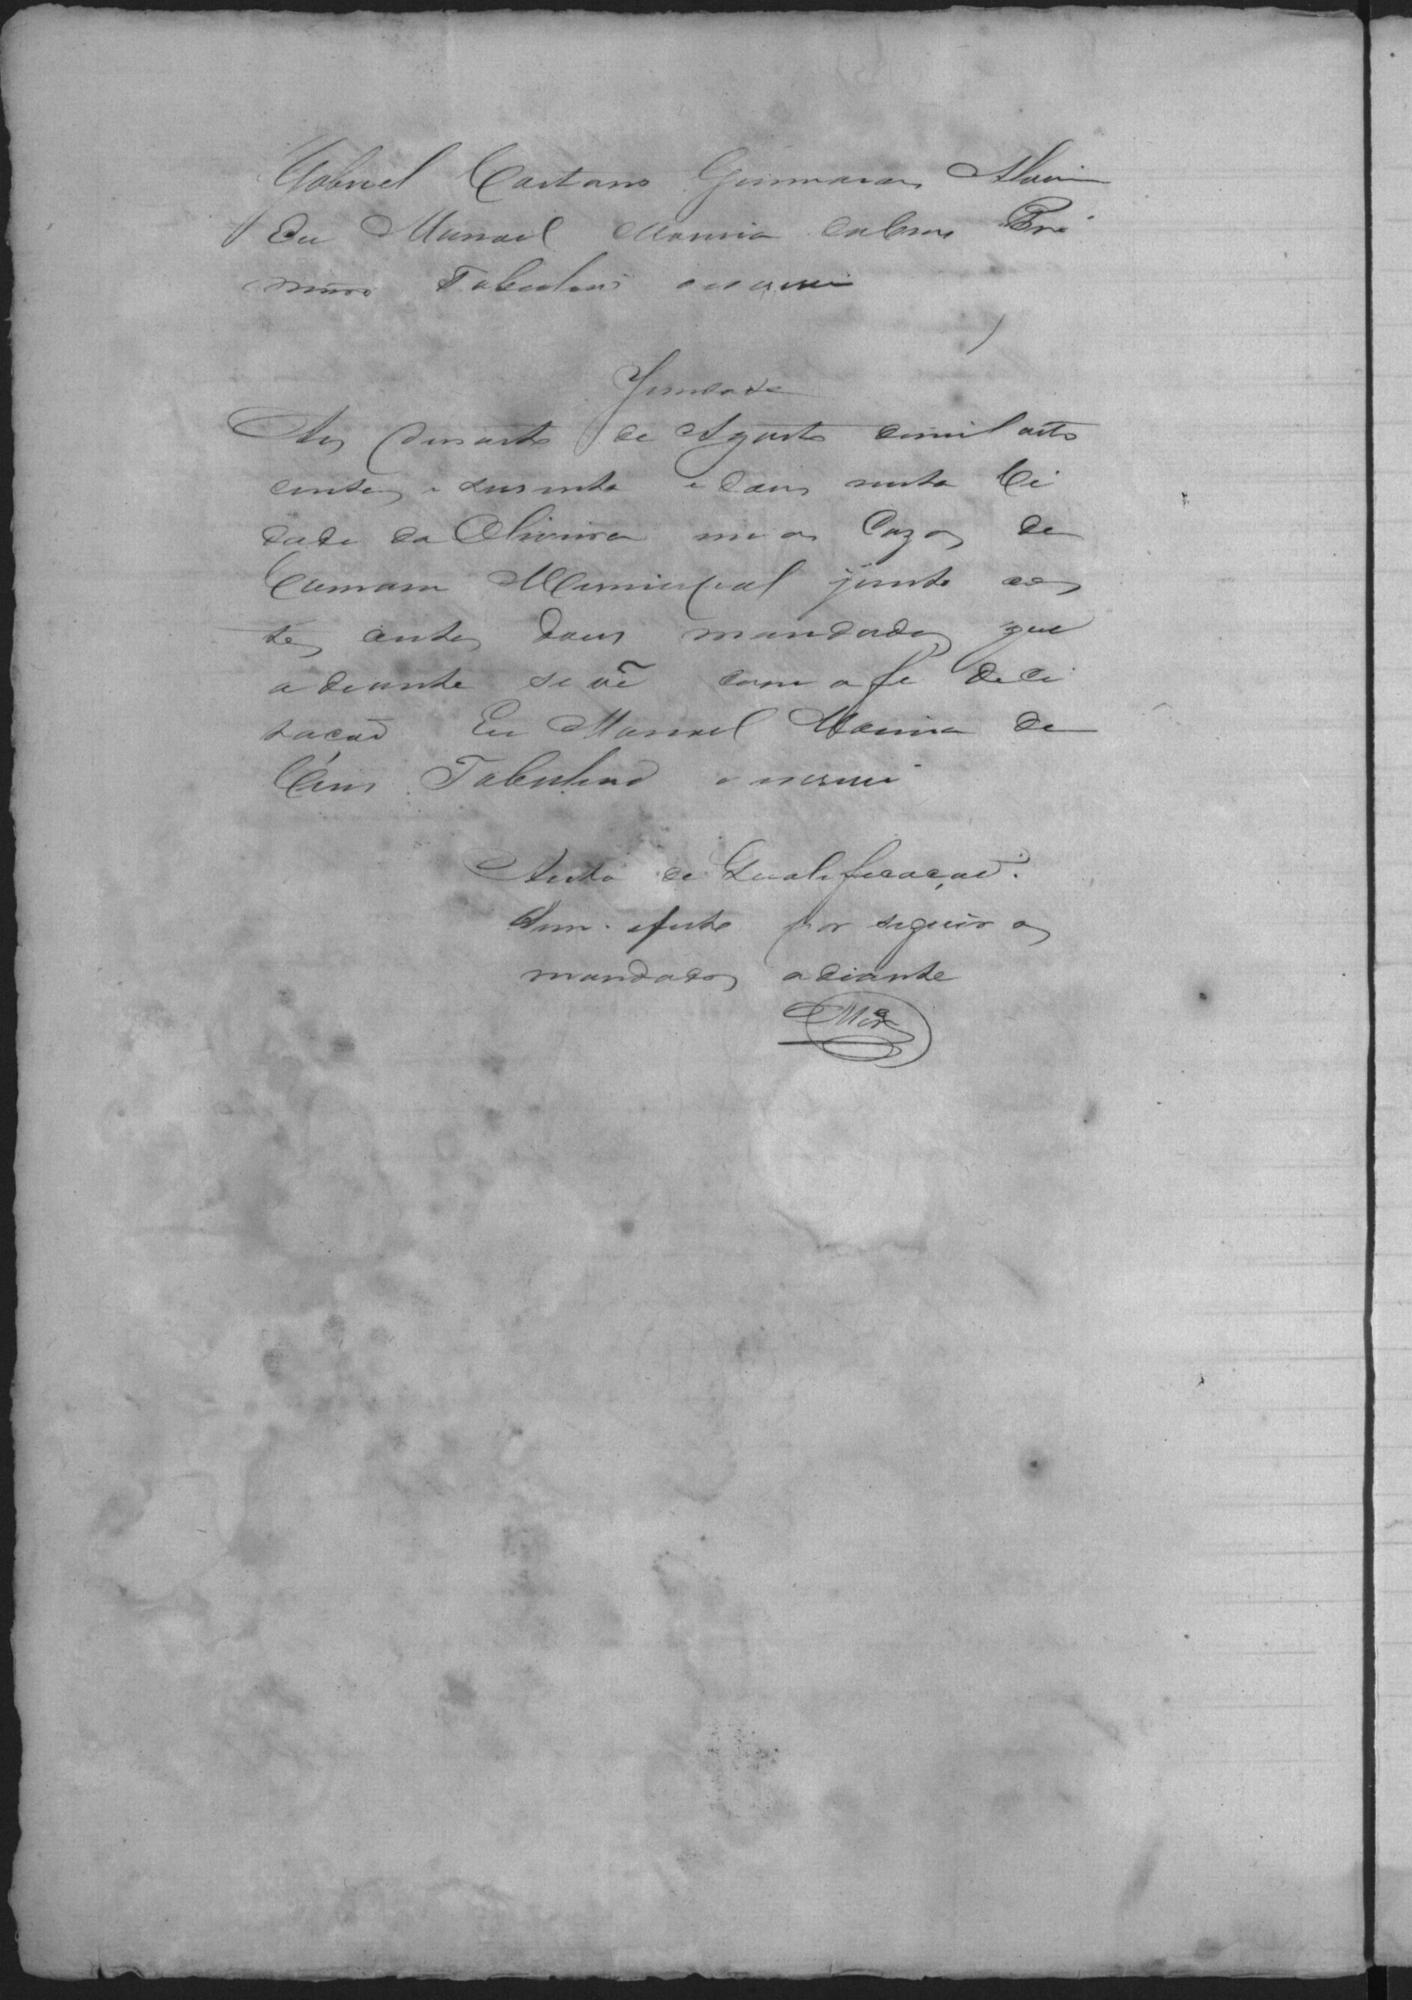 Gabriel Caetano Guimaraes
Eu Manoel Pri
meiro Tabeliaõ escrevi
Juntada
Aos de Agosto demil oito
centos e sesenta e dous nesta Ci
dade da Oliveira nas Cazas da
Camara Municipal junto aos
tes autos dous mandados que
adiante se vê com a fé de ci
tacaõ Eu Manoel de
Tabeliaõ o escrevi
Auto de Qualificaçaõ.
Sem efeito por seguir os
mandados adiante